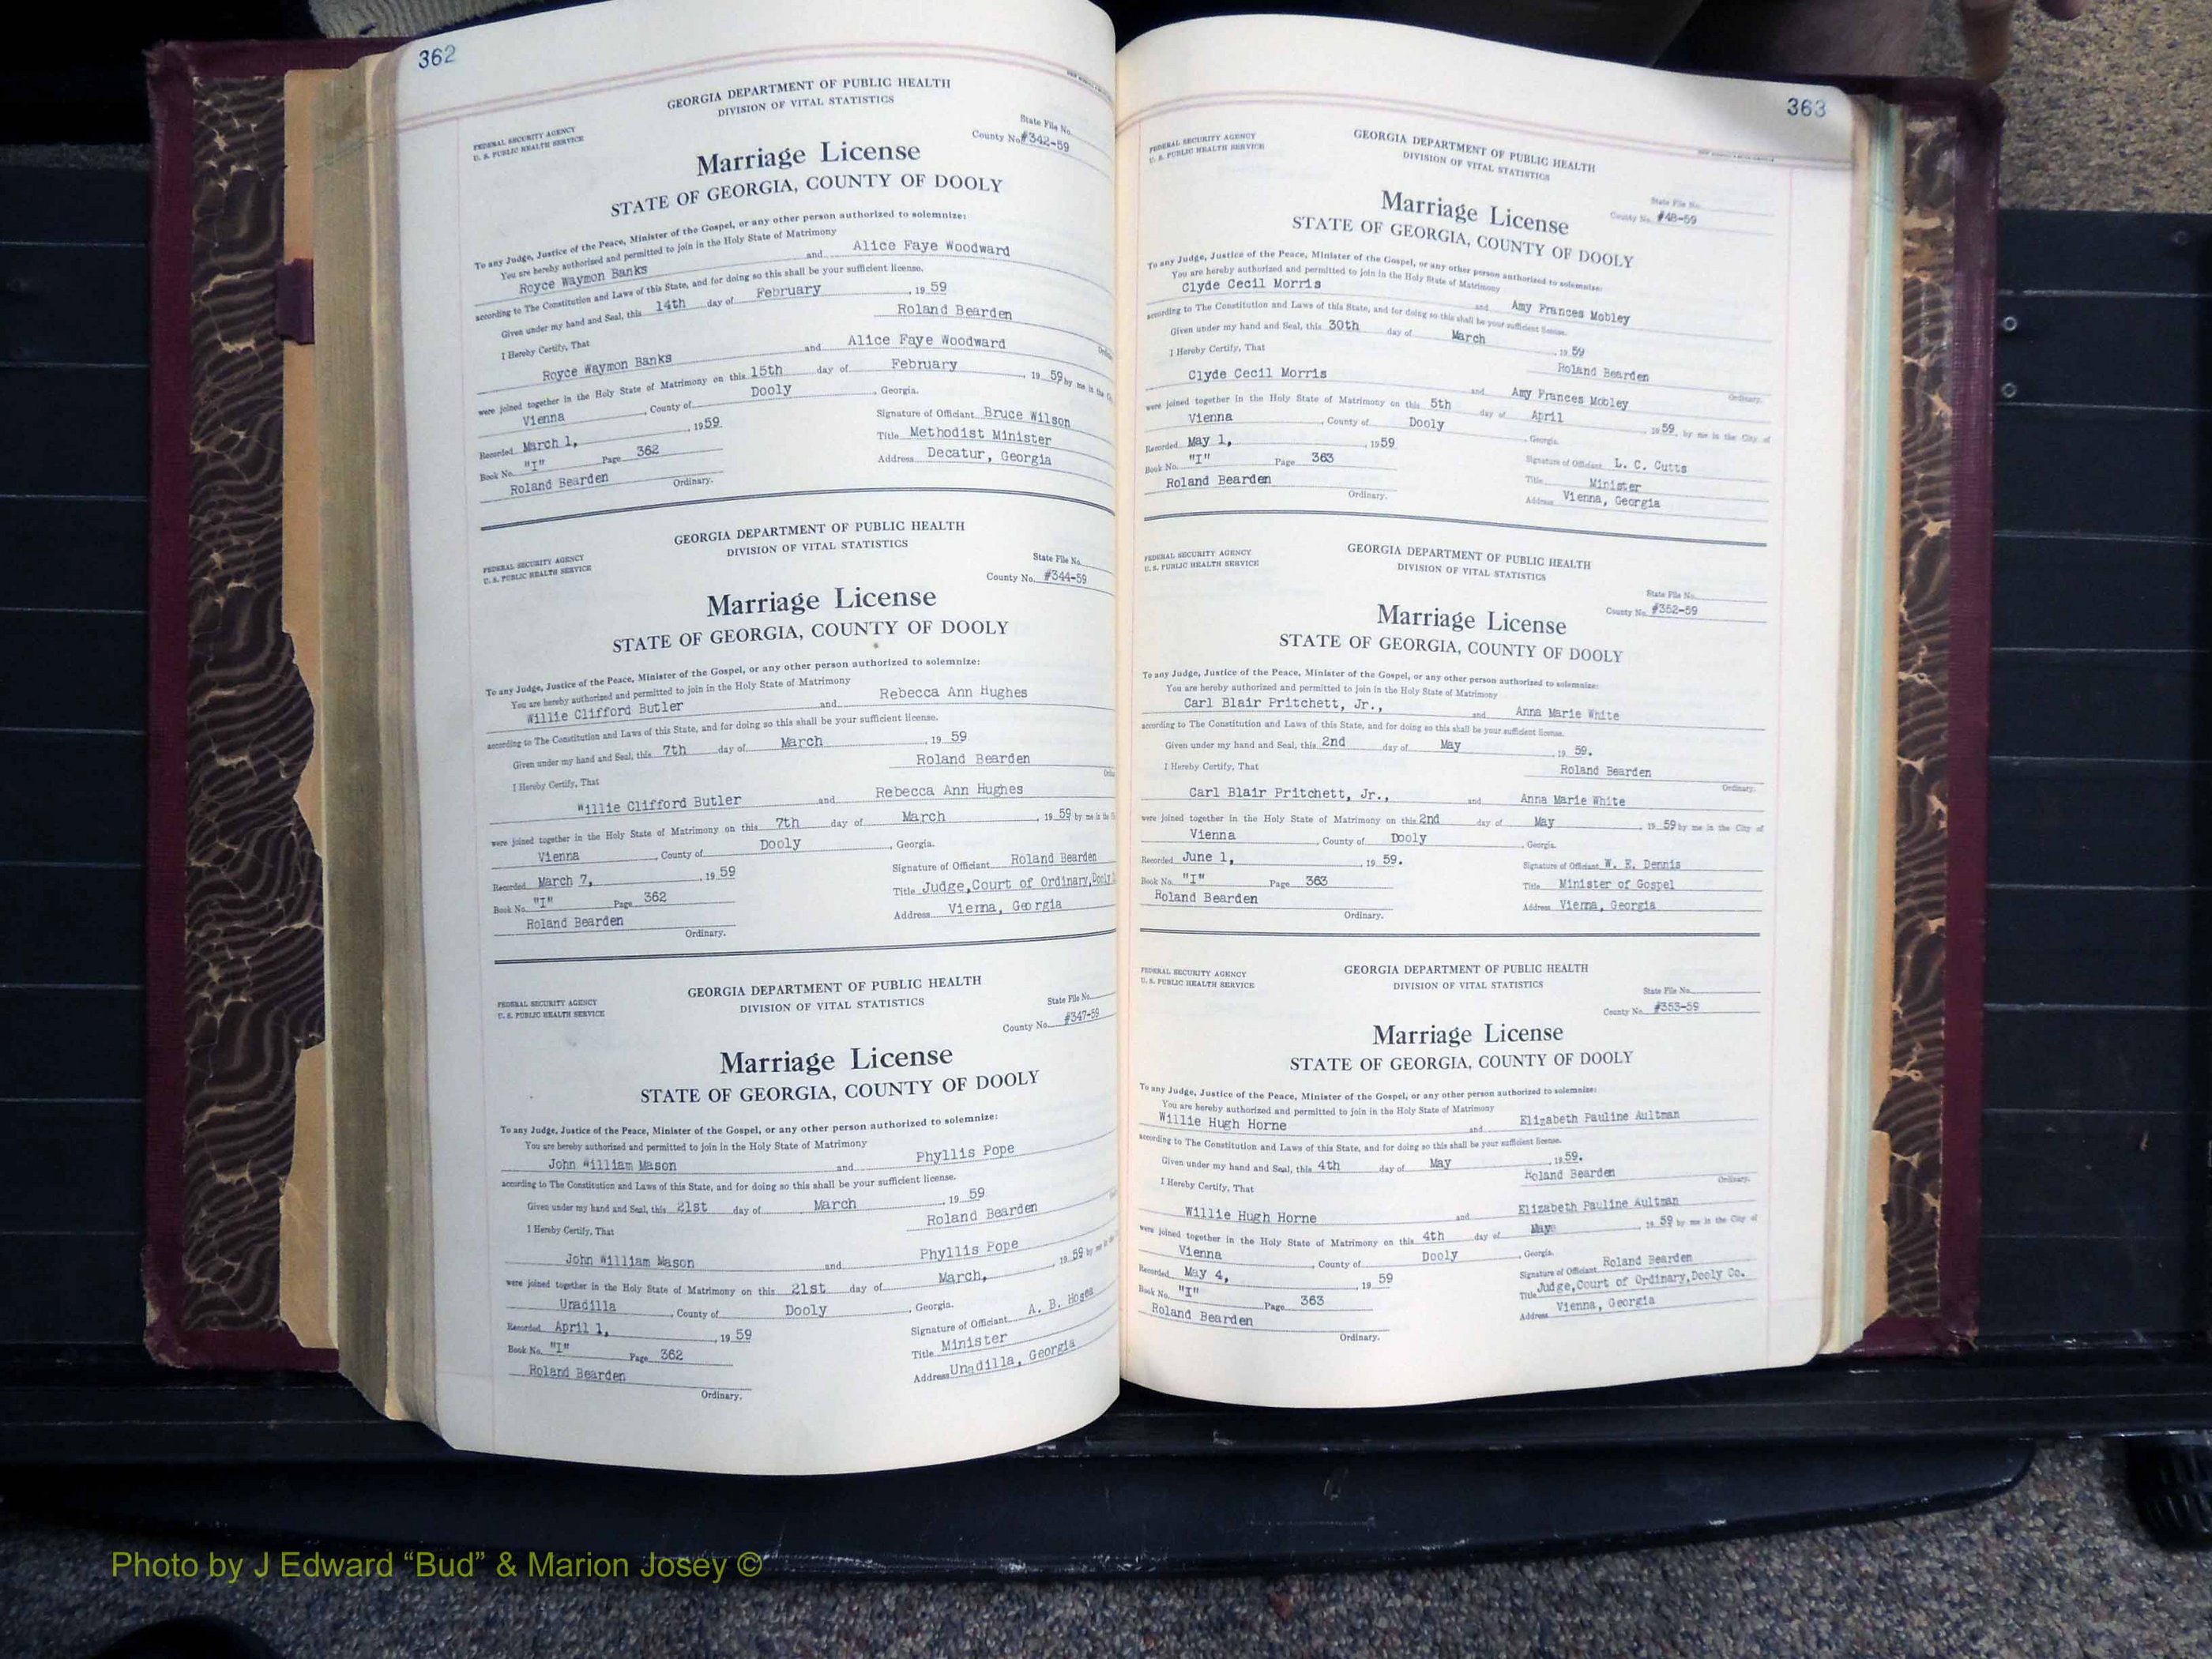 362
GEORGIA DEPARTMENT OF PUBLIC HEALTH
DIVISION OF VITAL STATISTICS
FEDERAL SECURITY AGENCY
U. S. PUBLIC HEALTH SERVICE
State File No.
County No. #342-59
Marriage License
STATE OF GEORGIA, COUNTY OF DOOLY
To any Judge, Justice of the Peace, Minister of the Gospel, or any other person authorized to solemnize:
You are hereby authorized and permitted to join in the Holy State of Matrimony
Royce Waymon Banks and Alice Faye Woodward
according to The Constitution and Laws of this State, and for doing so this shall be your sufficient license.
Given under my hand and Seal, this 14th day of February, 19 59
Roland Bearden
I Hereby Certify, That
Royce Waymon Banks and Alice Faye Woodward
were joined together in the Holy State of Matrimony on this 15th day of February, 19 59 by me in the
Vienna, County of Dooly, Georgia.
Recorded March 1, 1959 Signature of Officiant Bruce Wilson
Book No. "I" Page 362 Title Methodist Minister
Roland Bearden Address Decatur, Georgia
Ordinary.
GEORGIA DEPARTMENT OF PUBLIC HEALTH
DIVISION OF VITAL STATISTICS
FEDERAL SECURITY AGENCY
U. S. PUBLIC HEALTH SERVICE
State File No.
County No. #344-59
Marriage License
STATE OF GEORGIA, COUNTY OF DOOLY
To any Judge, Justice of the Peace, Minister of the Gospel, or any other person authorized to solemnize:
You are hereby authorized and permitted to join in the Holy State of Matrimony
Willie Clifford Butler and Rebecca Ann Hughes
according to The Constitution and Laws of this State, and for doing so this shall be your sufficient license.
Given under my hand and Seal, this 7th day of March, 19 59
Roland Bearden
I Hereby Certify, That
Willie Clifford Butler and Rebecca Ann Hughes
were joined together in the Holy State of Matrimony on this 7th day of March, 19 59 by me in the
Vienna, County of Dooly, Georgia.
Recorded March 7, 19 59 Signature of Officiant Roland Bearden
Book No. "I" Page 362 Title Judge,Court of Ordinary,Dooly
Roland Bearden Address Vienna, Georgia
Ordinary.
GEORGIA DEPARTMENT OF PUBLIC HEALTH
DIVISION OF VITAL STATISTICS
FEDERAL SECURITY AGENCY
U. S. PUBLIC HEALTH SERVICE
State File No.
County No. #347-59
Marriage License
STATE OF GEORGIA, COUNTY OF DOOLY
To any Judge, Justice of the Peace, Minister of the Gospel, or any other person authorized to solemnize:
You are hereby authorized and permitted to join in the Holy State of Matrimony
John William Mason and Phyllis Pope
according to The Constitution and Laws of this State, and for doing so this shall be your sufficient license.
Given under my hand and Seal, this 21st day of March, 19 59
Roland Bearden
I Hereby Certify, That
John William Mason and Phyllis Pope
were joined together in the Holy State of Matrimony on this 21st day of March, 19 59 by me in the
Unadilla, County of Dooly, Georgia.
Recorded April 1, 19 59 Signature of Officiant A. B. Hosea
Book No. "I" Page 362 Title Minister
Roland Bearden Address Unadilla, Georgia
Ordinary.
363
FEDERAL SECURITY AGENCY
U. S. PUBLIC HEALTH SERVICE
GEORGIA DEPARTMENT OF PUBLIC HEALTH
DIVISION OF VITAL STATISTICS
State File No.
County No. #48-59
Marriage License
STATE OF GEORGIA, COUNTY OF DOOLY
To any Judge, Justice of the Peace, Minister of the Gospel, or any other person authorized to solemnize:
You are hereby authorized and permitted to join in the Holy State of Matrimony
Clyde Cecil Morris and Amy Frances Mobley
according to The Constitution and Laws of this State, and for doing so this shall be your sufficient license.
Given under my hand and Seal, this 30th day of March, 19 59
Roland Bearden
I Hereby Certify, That Ordinary.
Clyde Cecil Morris and Amy Frances Mobley
were joined together in the Holy State of Matrimony on this 5th day of April 19 59 by me in the City of
Vienna, County of Dooly, Georgia.
Recorded May 1, 1959 Signature of Officiant L. C. Cutts
Book No. "I" Page 363 Title Minister
Roland Bearden Address Vienna, Georgia
Ordinary.
FEDERAL SECURITY AGENCY
U. S. PUBLIC HEALTH SERVICE
GEORGIA DEPARTMENT OF PUBLIC HEALTH
DIVISION OF VITAL STATISTICS
State File No.
County No. #352-59
Marriage License
STATE OF GEORGIA, COUNTY OF DOOLY
To any Judge, Justice of the Peace, Minister of the Gospel, or any other person authorized to solemnize:
You are hereby authorized and permitted to join in the Holy State of Matrimony
Carl Blair Pritchett, Jr., and Anna Marie White
according to The Constitution and Laws of this State, and for doing so this shall be your sufficient license.
Given under my hand and Seal, this 2nd day of May, 19 59.
Roland Bearden
I Hereby Certify, That Ordinary.
Carl Blair Pritchett, Jr., and Anna Marie White
were joined together in the Holy State of Matrimony on this 2nd day of May, 19 59 by me in the City of
Vienna, County of Dooly, Georgia.
Recorded June 1, 19 59. Signature of Officiant W. E. Dennis
Book No. "I" Page 363 Title Minister of Gospel
Roland Bearden Address Vienna, Georgia
Ordinary.
FEDERAL SECURITY AGENCY
U. S. PUBLIC HEALTH SERVICE
GEORGIA DEPARTMENT OF PUBLIC HEALTH
DIVISION OF VITAL STATISTICS
State File No.
County No. #353-59
Marriage License
STATE OF GEORGIA, COUNTY OF DOOLY
To any Judge, Justice of the Peace, Minister of the Gospel, or any other person authorized to solemnize:
You are hereby authorized and permitted to join in the Holy State of Matrimony
Willie Hugh Horne and Elizabeth Pauline Aultman
according to The Constitution and Laws of this State, and for doing so this shall be your sufficient license.
Given under my hand and Seal, this 4th day of May, 19 59.
Roland Bearden
I Hereby Certify, That Ordinary.
Willie Hugh Horne and Elizabeth Pauline Aultman
were joined together in the Holy State of Matrimony on this 4th day of May, 19 59 by me in the City of
Vienna, County of Dooly, Georgia.
Recorded May 4, 19 59 Signature of Officiant Roland Bearden
Book No. "I" Page 363 Title Judge,Court of Ordinary,Dooly Co.
Roland Bearden Address Vienna, Georgia
Ordinary.
Photo by J Edward “Bud” & Marion Josey ©